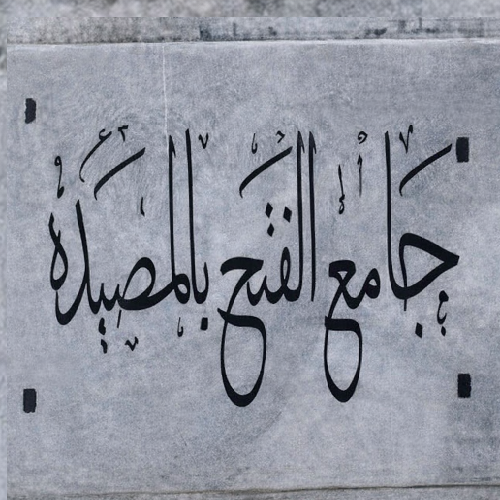 جامع الفتح بالمصيده